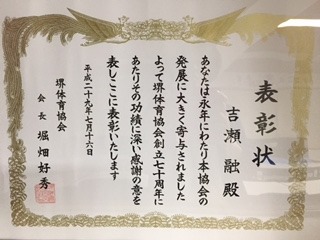 表彰状
吉瀬 融 殿
あなたは永年にわたり本協会の
発展に大きく寄与されました
よって堺体育協会創立七十周年に
あたりその功績に深い感謝の意を
表しここに表彰いたします
平成二十九年七月十六日
堺体育協会
会長 堀畑好秀